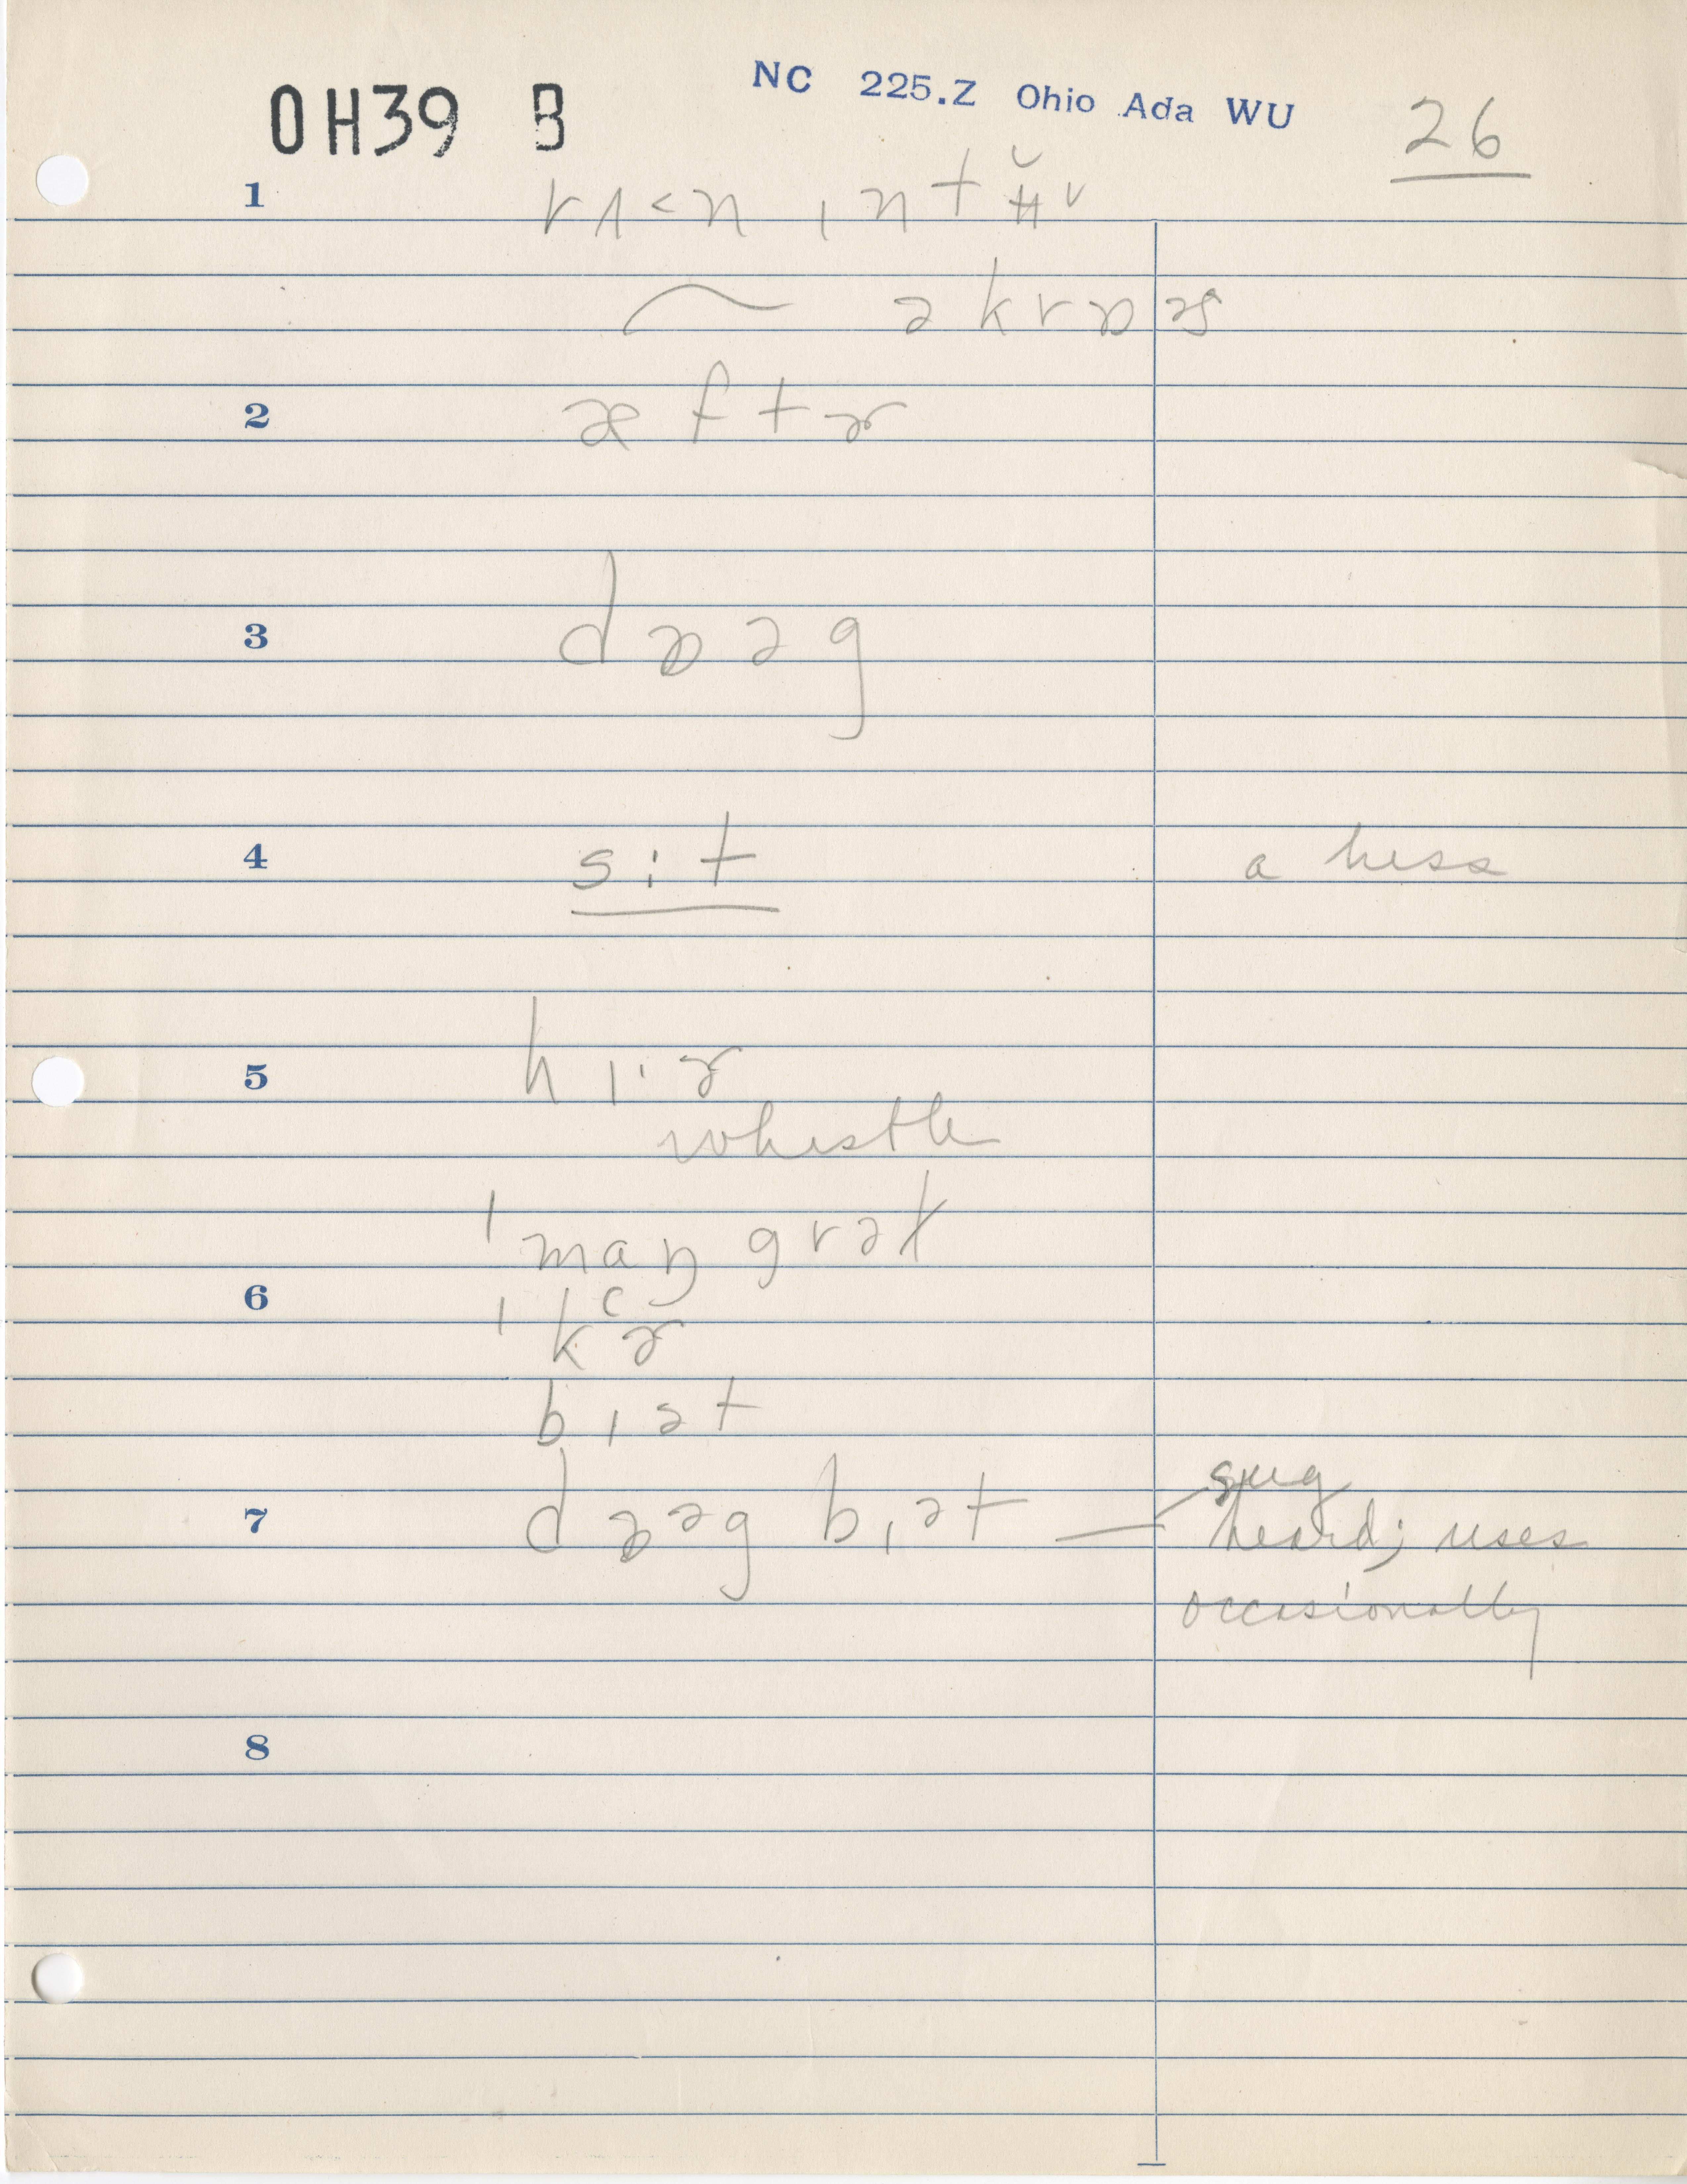 OH39 B NC 225.Z Ohio Ada WU 26
1 rʌ<n ɪntʉ̆v
~ əkrɒəs
2 æftɚ
3 dɒəg
4 sɪt a hiss
5 hɪ·ɚ
whistle
ˈmaŋgrət
6 ˈkʿɚ
bɪət
7 dɒəg bɪət — sug
heard; uses
occasionally
8